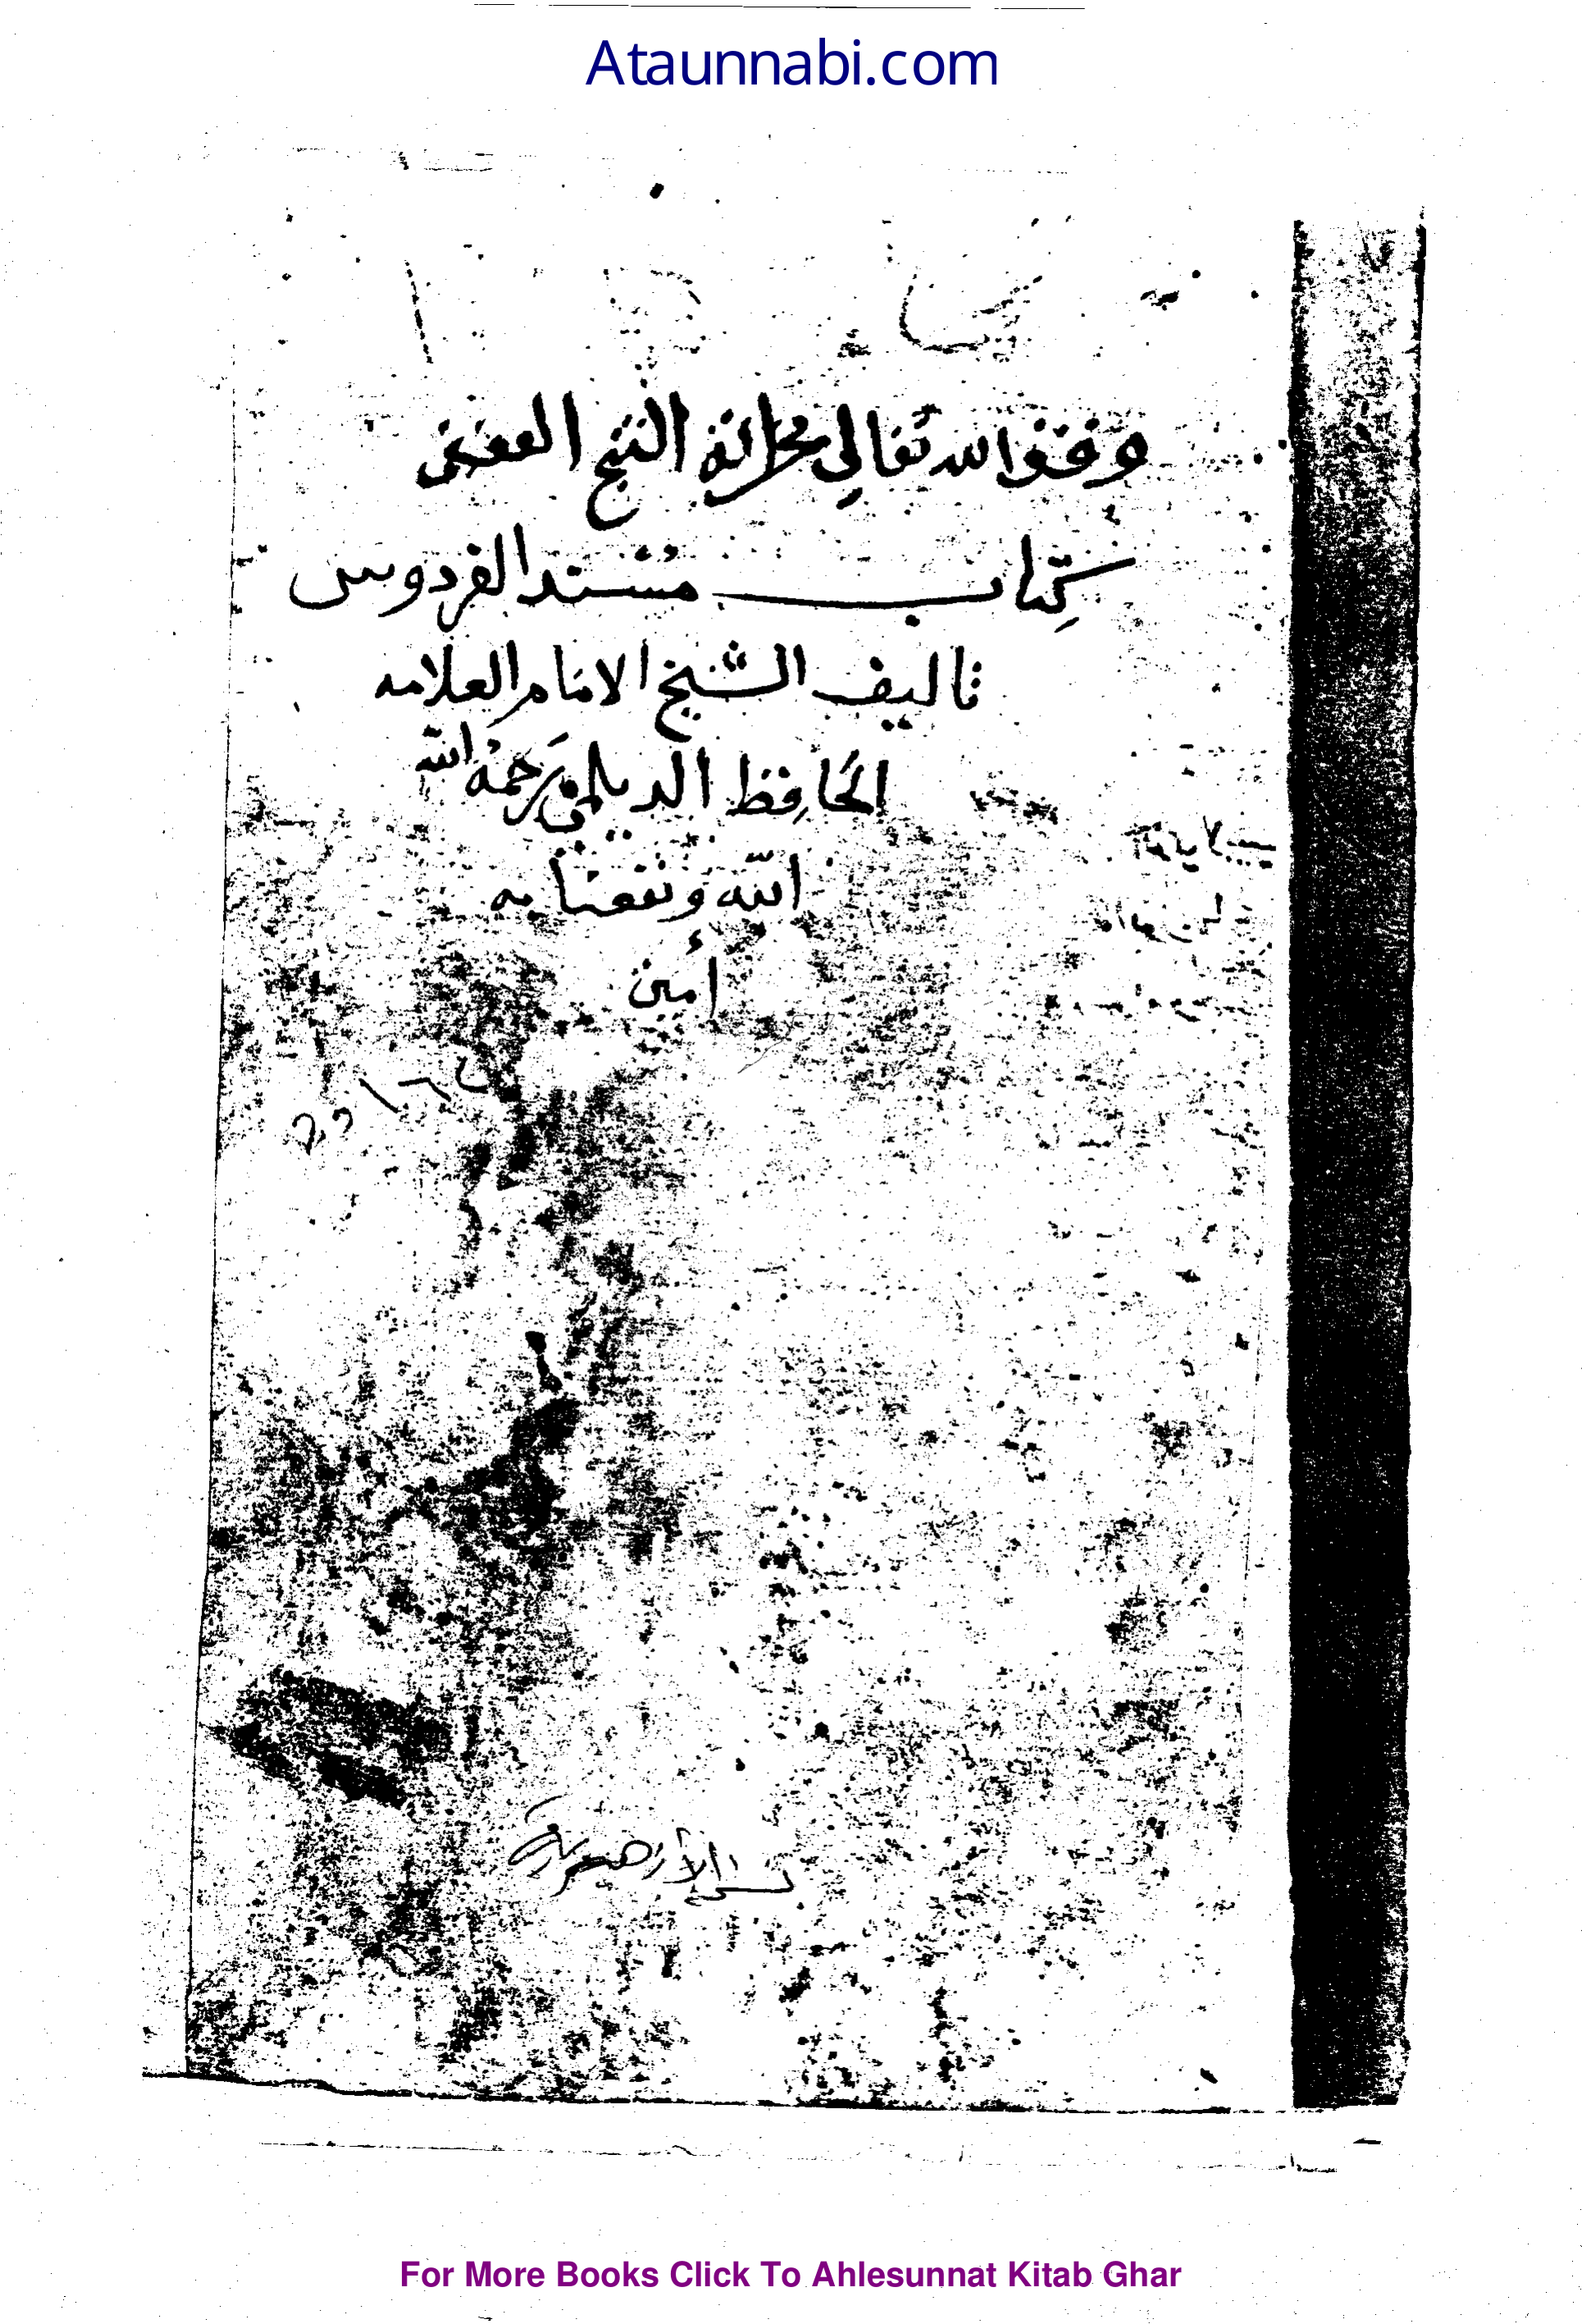 Ataunnabi.com
وقف لله تعالى بخزانة الشيخ العفيفي
كِتاب مُسْند الفردوس
تاليف الشيخ الامام العلامه
الحافِظ الديلمي رَحمَهُ الله
الله ونفعنا به
أمين
نسخة الأزهرية
For More Books Click To Ahlesunnat Kitab Ghar